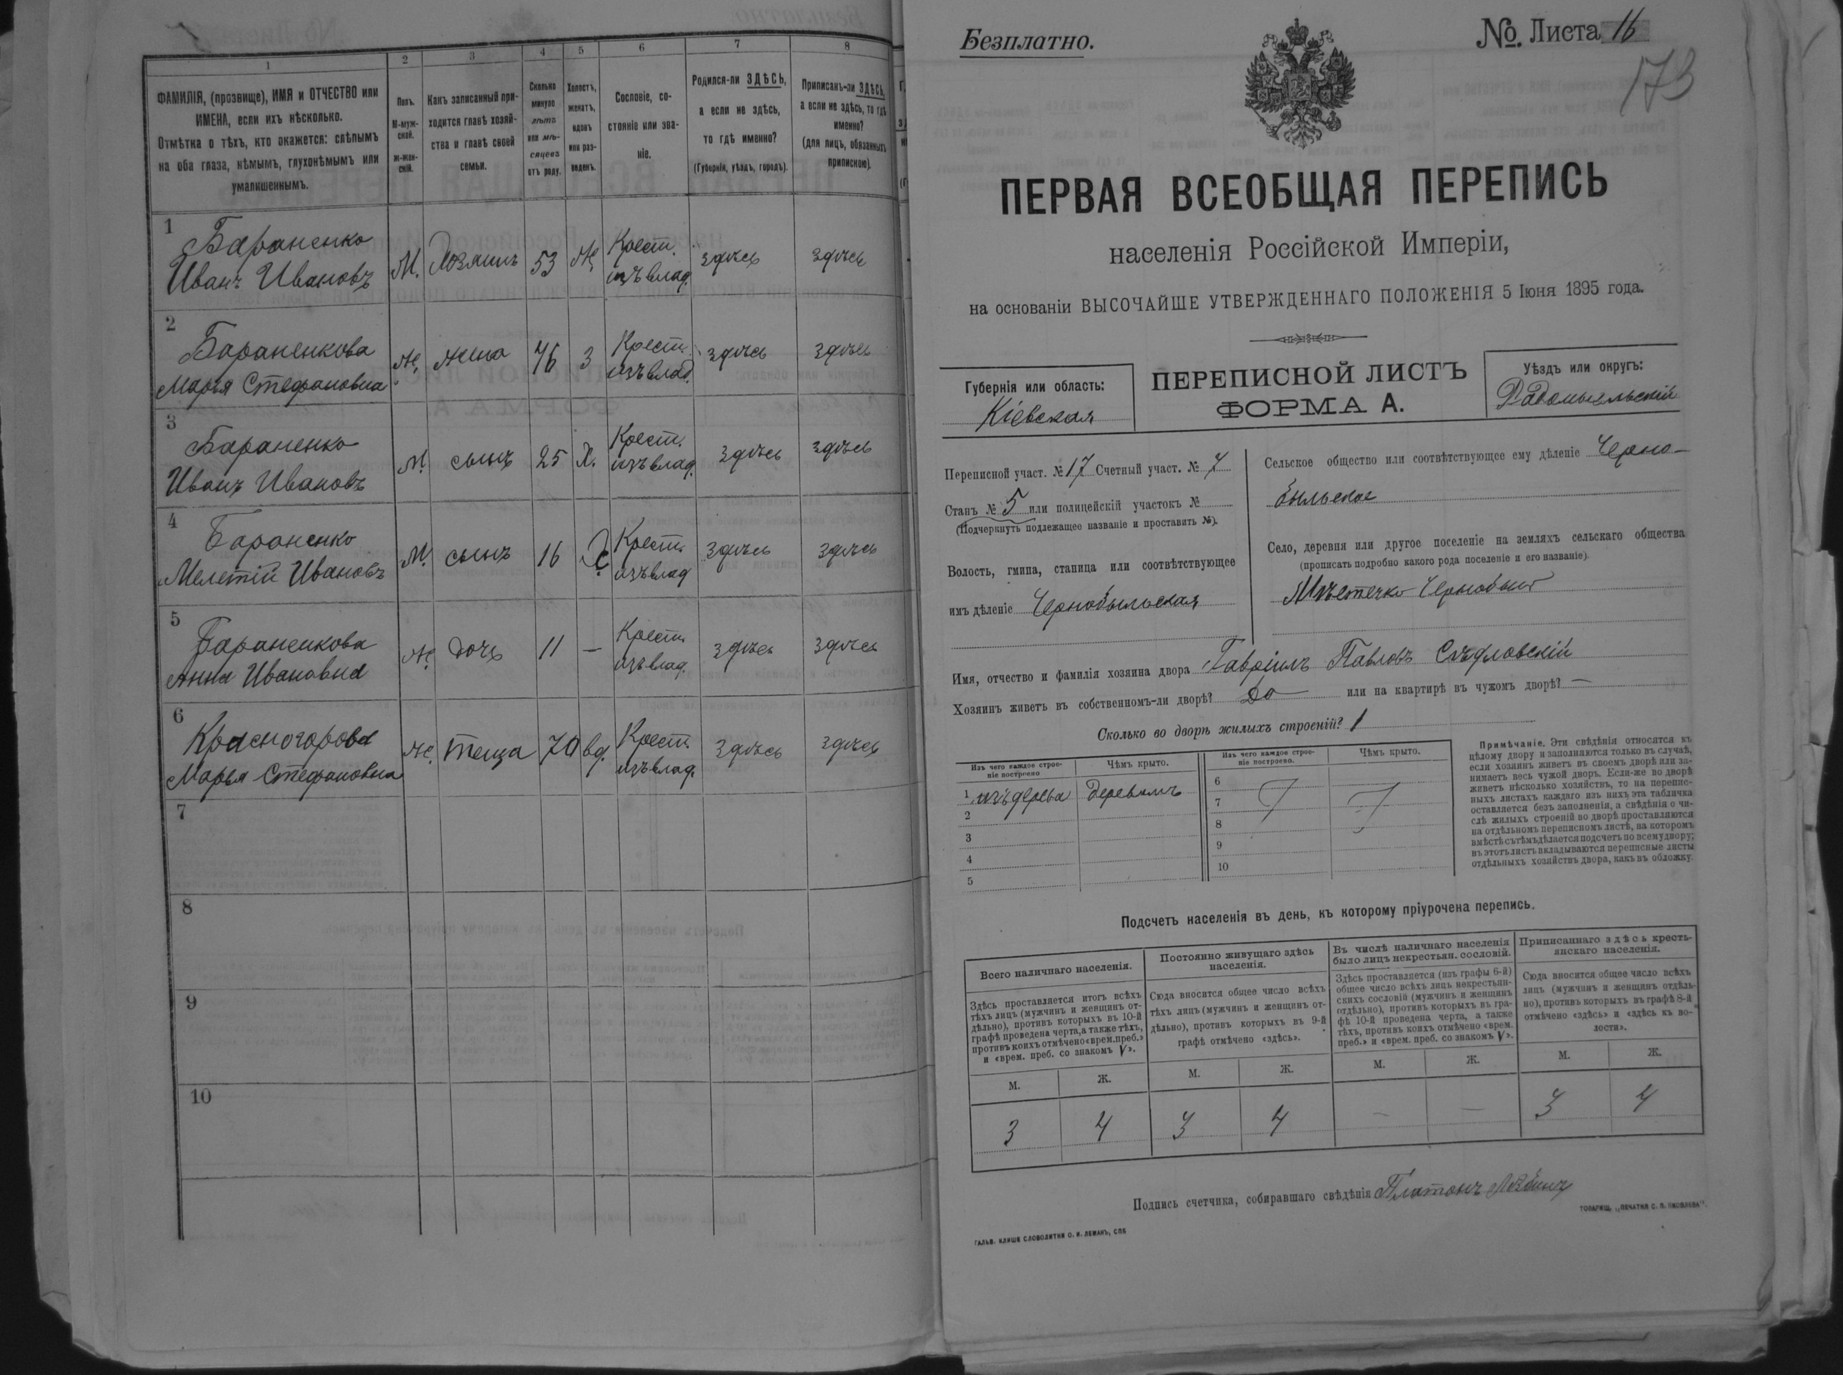 1
2
3
4
5
6
7
8
ФАМИЛІЯ, (прозвище), ИМЯ и ОТЧЕСТВО или
ИМЕНА, если ихъ нѣсколько.
Отмѣтка о тѣхъ, кто окажется: слѣпымъ
на оба глаза, нѣмымъ, глухонѣмымъ или
умалишеннымъ.
Полъ.
М-муж-
ской.
ж-жен-
скій.
Какъ записанный при-
ходится главѣ хозяй-
ства и главѣ своей
семьи.
Сколько
минуло
лѣтъ
или мѣ-
сяцевъ
отъ роду.
Холостъ,
женатъ,
вдовъ
или раз-
веденъ.
Сословіе, со-
стояніе или зва-
ніе.
Родился-ли ЗДѢСЬ,
а если не здѣсь,
то гдѣ именно?
(Губернія, уѣздъ, городъ).
Приписанъ-ли ЗДѢСЬ,
а если не здѣсь, то гдѣ
именно?
(для лицъ, обязанныхъ
припискою).
1
Бараненко
Иванъ Ивановъ
М.
Хозяинъ
53
Ж
Крест.
изъ влад.
здѣсь
здѣсь
2
Бараненкова
Марья Стефановна
Ж.
жена
46
З
Крест.
изъ влад.
здѣсь
здѣсь
3
Бараненко
Иванъ Ивановъ
М.
сынъ
25
Х.
Крест.
изъ влад.
здѣсь
здѣсь
4
Бараненко
Мелетій Ивановъ
М.
сынъ
16
Х
Крест.
изъ влад
здѣсь
здѣсь
5
Бараненкова
Анна Ивановна
Ж.
дочь
11
—
Крест.
изъ влад
здѣсь
здѣсь
6
Красногорова
Марья Стефановна
Ж.
теща
70
вд.
Крест.
изъ влад.
здѣсь
здѣсь
7
8
9
10
Безплатно.
№. Листа 16
173
ПЕРВАЯ ВСЕОБЩАЯ ПЕРЕПИСЬ
населенія Россійской Имперіи,
на основаніи ВЫСОЧАЙШЕ УТВЕРЖДЕННАГО ПОЛОЖЕНІЯ 5 Іюня 1895 года.
Губернія или область:
Кіевская
ПЕРЕПИСНОЙ ЛИСТЪ
ФОРМА А.
Уѣздъ или округъ:
Радомысльскій
Переписной участ. № 17 Счетный участ. № 7
Станъ № 5 или полицейскій участокъ №
(Подчеркнуть подлежащее названіе и проставить №).
Волость, гмина, станица или соотвѣтствующее
имъ дѣленіе Чернобыльская
Сельское общество или соотвѣтствующее ему дѣленіе Черно-
быльское
Село, деревня или другое поселеніе на земляхъ сельскаго общества
(прописать подробно какого рода поселеніе и его названіе).
Мѣстечко Чернобыль
Имя, отчество и фамилія хозяина двора Гавріилъ Павловъ Сѣдловскій
Хозяинъ живетъ въ собственномъ-ли дворѣ? Да или на квартирѣ въ чужомъ дворѣ? —
Сколько во дворѣ жилыхъ строеній? 1
Изъ чего каждое строе-
ніе построено
Чѣмъ крыто.
Изъ чего каждое строе-
ніе построено.
Чѣмъ крыто.
1 изъ дерева деревомъ
2
3
4
5
6
7
8
9
10
Примѣчаніе. Эти свѣдѣнія относятся къ
цѣлому двору и заполняются только въ случаѣ,
если хозяинъ живетъ въ своемъ дворѣ или за-
нимаетъ весь чужой дворъ. Если-же во дворѣ
живетъ нѣсколько хозяйствъ, то на перепис-
ныхъ листахъ каждаго изъ нихъ эта табличка
оставляется безъ заполненія, а свѣдѣнія о чи-
слѣ жилыхъ строеній во дворѣ проставляются
на отдѣльномъ переписномъ листѣ, на которомъ
вмѣстѣ съ тѣмъ дѣлается подсчетъ по всему двору;
въ этотъ листъ вкладываются переписные листы
отдѣльныхъ хозяйствъ двора, какъ въ обложку.
Подсчетъ населенія въ день, къ которому пріурочена перепись.
Всего наличнаго населенія.
Постоянно живущаго здѣсь
населенія.
Въ числѣ наличнаго населенія
было лицъ некрестьян. сословій.
Приписаннаго здѣсь кресть-
янскаго населенія.
Здѣсь проставляется итогъ всѣхъ
тѣхъ лицъ (мужчинъ и женщинъ от-
дѣльно), противъ которыхъ въ 10-й
графѣ проведена черта, а также тѣхъ,
противъ коихъ отмѣчено «врем. преб.»
и «врем. преб. со знакомъ V».
Сюда вносится общее число всѣхъ
тѣхъ лицъ (мужчинъ и женщинъ от-
дѣльно), противъ которыхъ въ 9-й
графѣ отмѣчено «здѣсь».
Здѣсь проставляется (изъ графы 6-й)
общее число всѣхъ лицъ некрестьян-
скихъ сословій (мужчинъ и женщинъ
отдѣльно), противъ которыхъ въ гра-
фѣ 10-й проведена черта, а также
тѣхъ, противъ коихъ отмѣчено «врем.
преб.» и «врем. преб. со знакомъ V».
Сюда вносится общее число всѣхъ
лицъ (мужчинъ и женщинъ отдѣль-
но), противъ которыхъ въ графѣ 8-й
отмѣчено «здѣсь» и «здѣсь въ во-
лости».
М.
Ж.
М.
Ж.
М.
Ж.
М.
Ж.
3
4
3
4
—
—
3
4
Подпись счетчика, собиравшаго свѣдѣнія Платонъ
ГАЛЬВ. КЛИШЕ СЛОВОЛИТНИ О. И. ЛЕМАНЪ, СПБ
ТОВАРИЩ. „ПЕЧАТНЯ С. П. ЯКОВЛЕВА“.